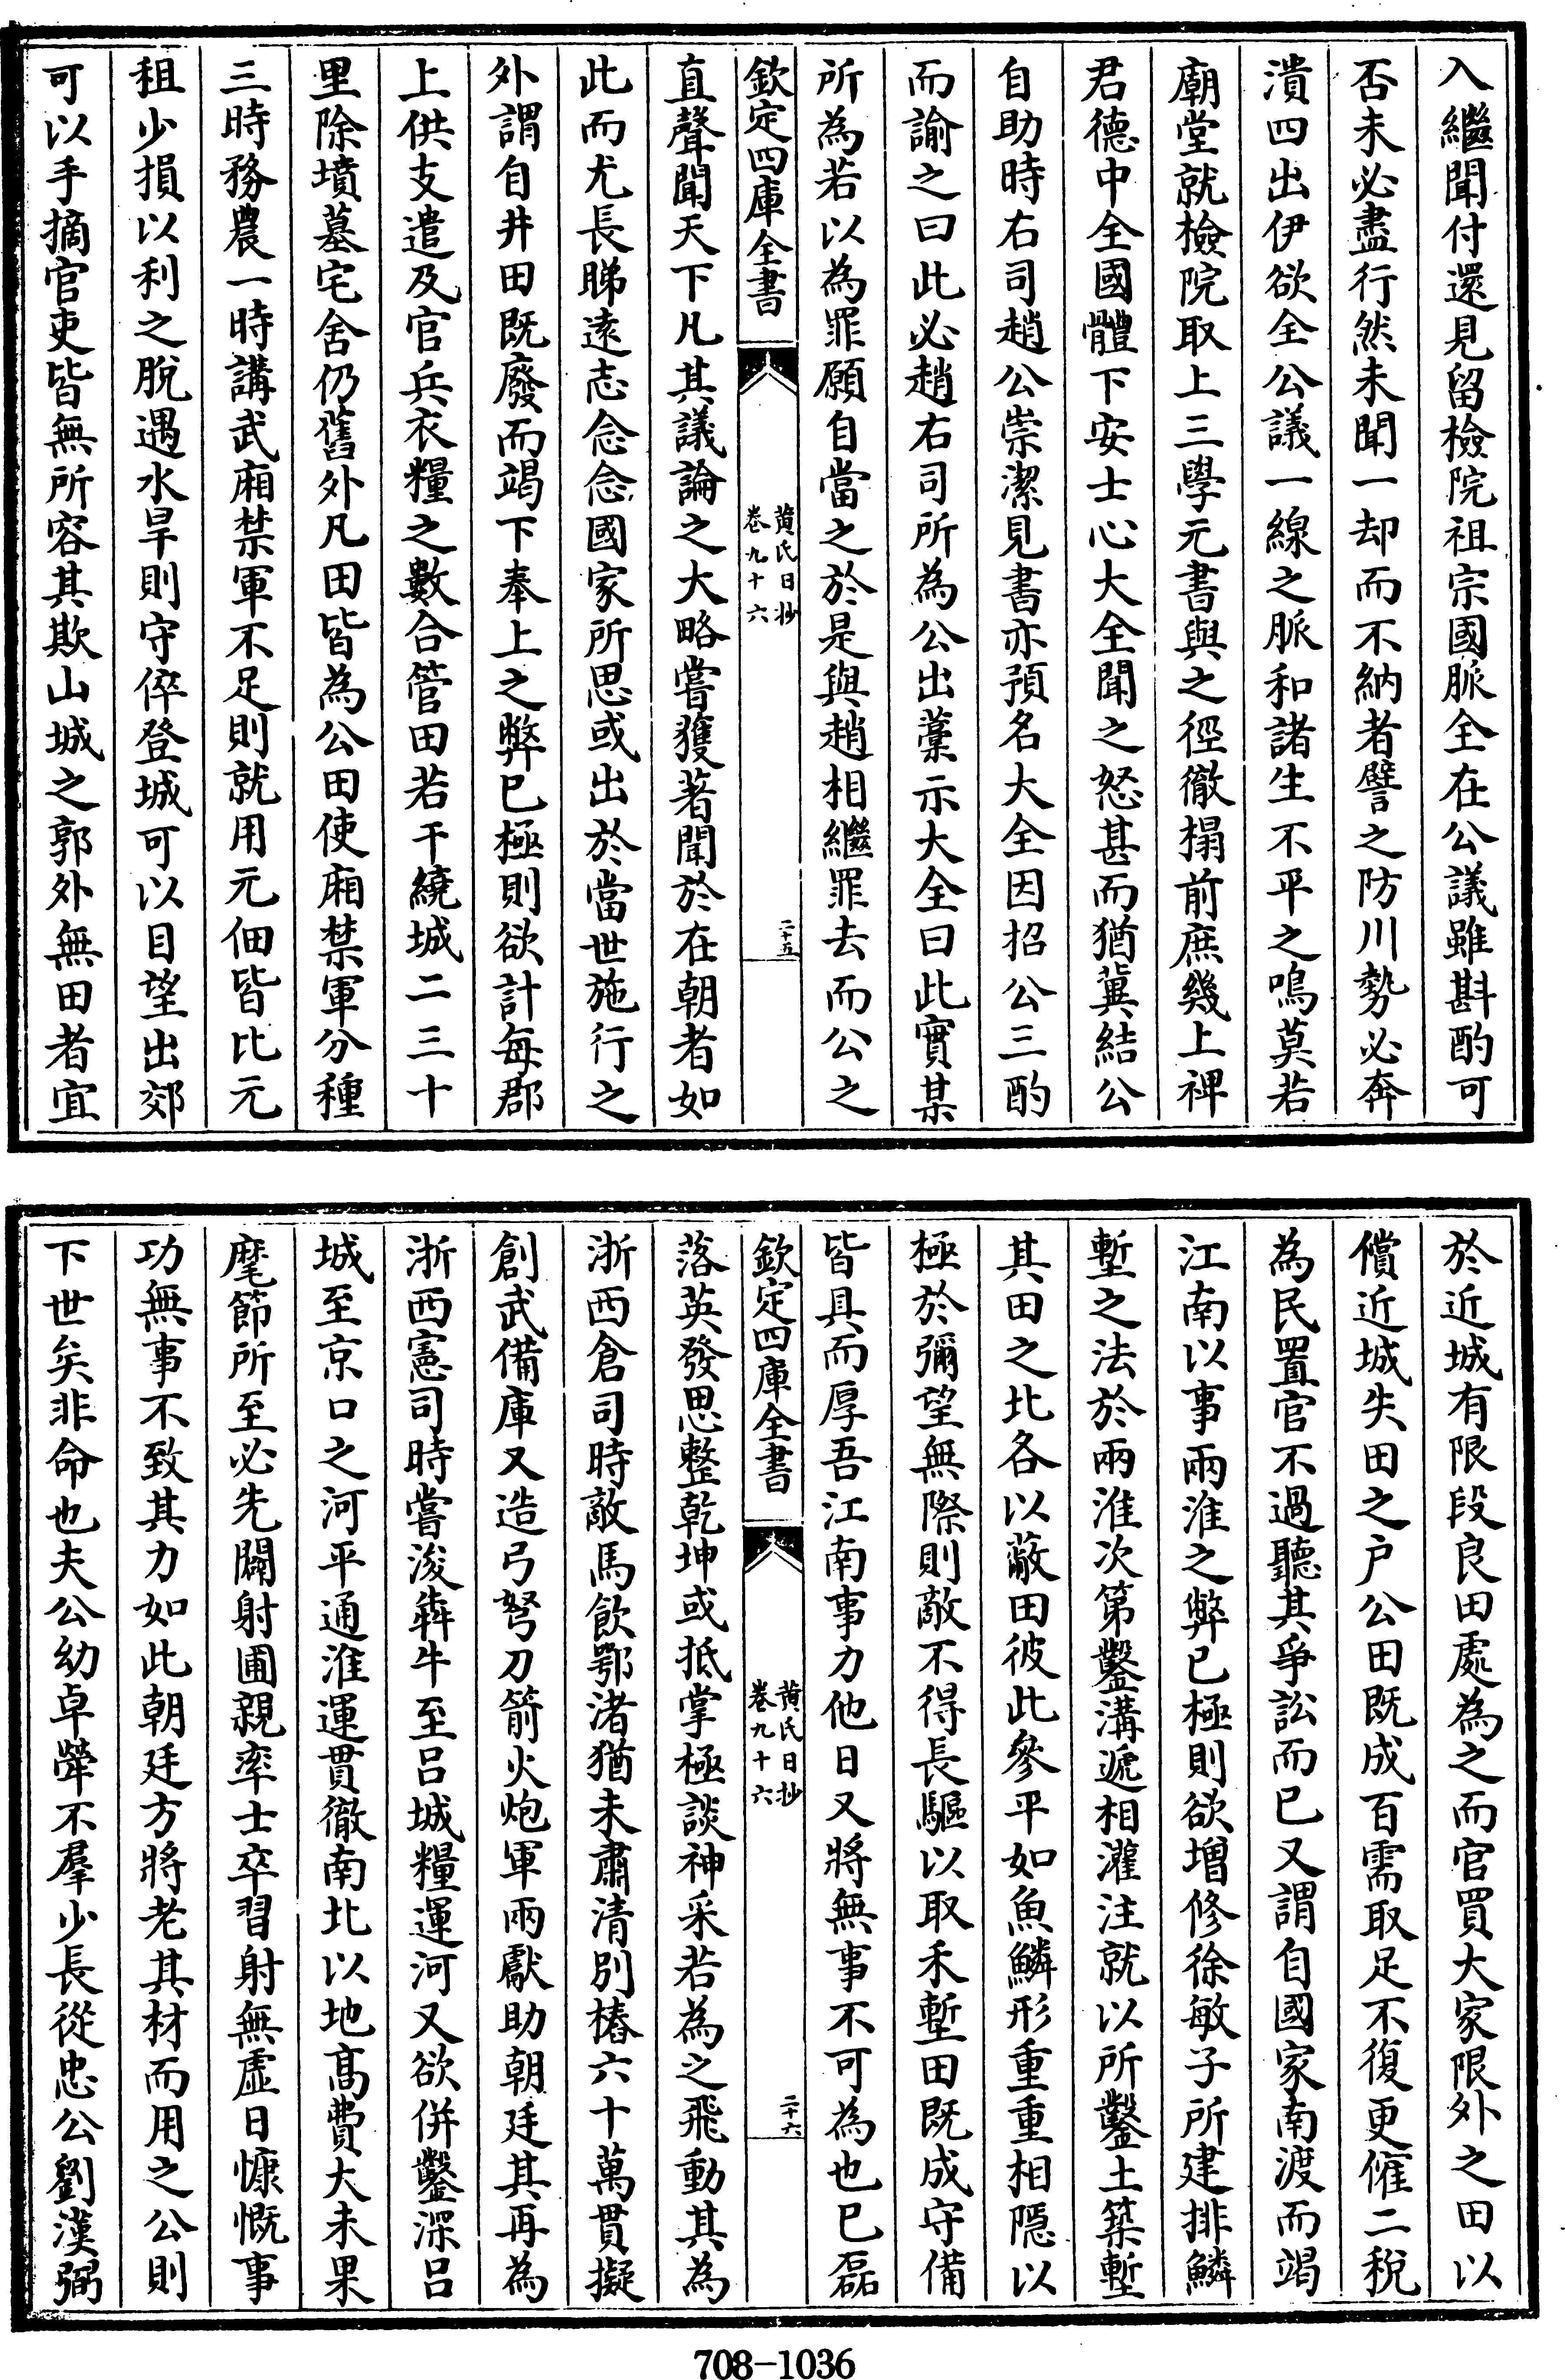 入繼聞付還見留檢院祖宗國脈全在公議雖斟酌可
否未必盡行然未聞一却而不納者譬之防川勢必奔
潰四出伊欲全公議一線之脈和諸生不平之鳴莫若
廟堂就檢院取上三學元書與之徑徹榻前庶幾上裨
君德中全國體下安士心大全聞之怒甚而猶冀結公
自助時右司趙公崇潔見書亦預名大全因招公三酌
而諭之曰此必趙右司所為公出藳示大全曰此實某
所為若以為罪願自當之於是與趙相繼罪去而公之
欽定四庫全書
黄氏日抄
卷九十六
二十五
直聲聞天下凡其議論之大略嘗獲著聞於在朝者如
此而尤長睇遠志念念國家所思或出於當世施行之
外謂自井田既廢而竭下奉上之弊已極則欲計每郡
上供支遣及官兵衣糧之數合管田若干繞城二三十
里除墳墓宅舍仍舊外凡田皆為公田使廂禁軍分種
三時務農一時講武廂禁軍不足則就用元佃皆比元
租少損以利之脫遇水旱則守倅登城可以目望出郊
可以手摘官吏皆無所容其欺山城之郭外無田者宜
於近城有限段良田處為之而官買大家限外之田以
償近城失田之户公田既成百需取足不復更催二稅
為民置官不過聽其爭訟而已又謂自國家南渡而竭
江南以事兩淮之弊已極則欲增修徐敏子所建排鱗
塹之法於兩淮次第鑿溝遞相灌注就以所鑿土築塹
其田之北各以蔽田彼此參平如魚鱗形重重相隱以
極於彌望無際則敵不得長驅以取禾塹田既成守備
皆具而厚吾江南事力他日又將無事不可為也已磊
欽定四庫全書
黄氏日抄
卷九十六
二十六
落英發思整乾坤或抵掌極談神采若為之飛動其為
浙西倉司時敵馬飲鄂渚猶未肅清別樁六十萬貫擬
創武備庫又造弓弩刀箭火炮軍兩獻助朝廷其再為
浙西憲司時嘗浚犇牛至呂城糧運河又欲併鑿深呂
城至京口之河平通淮運貫徹南北以地髙費大未果
麾節所至必先闢射圃親率士卒習射無虛日慷慨事
功無事不致其力如此朝廷方將老其材而用之公則
下世矣非命也夫公幼卓犖不羣少長從忠公劉漢弼
708-1036